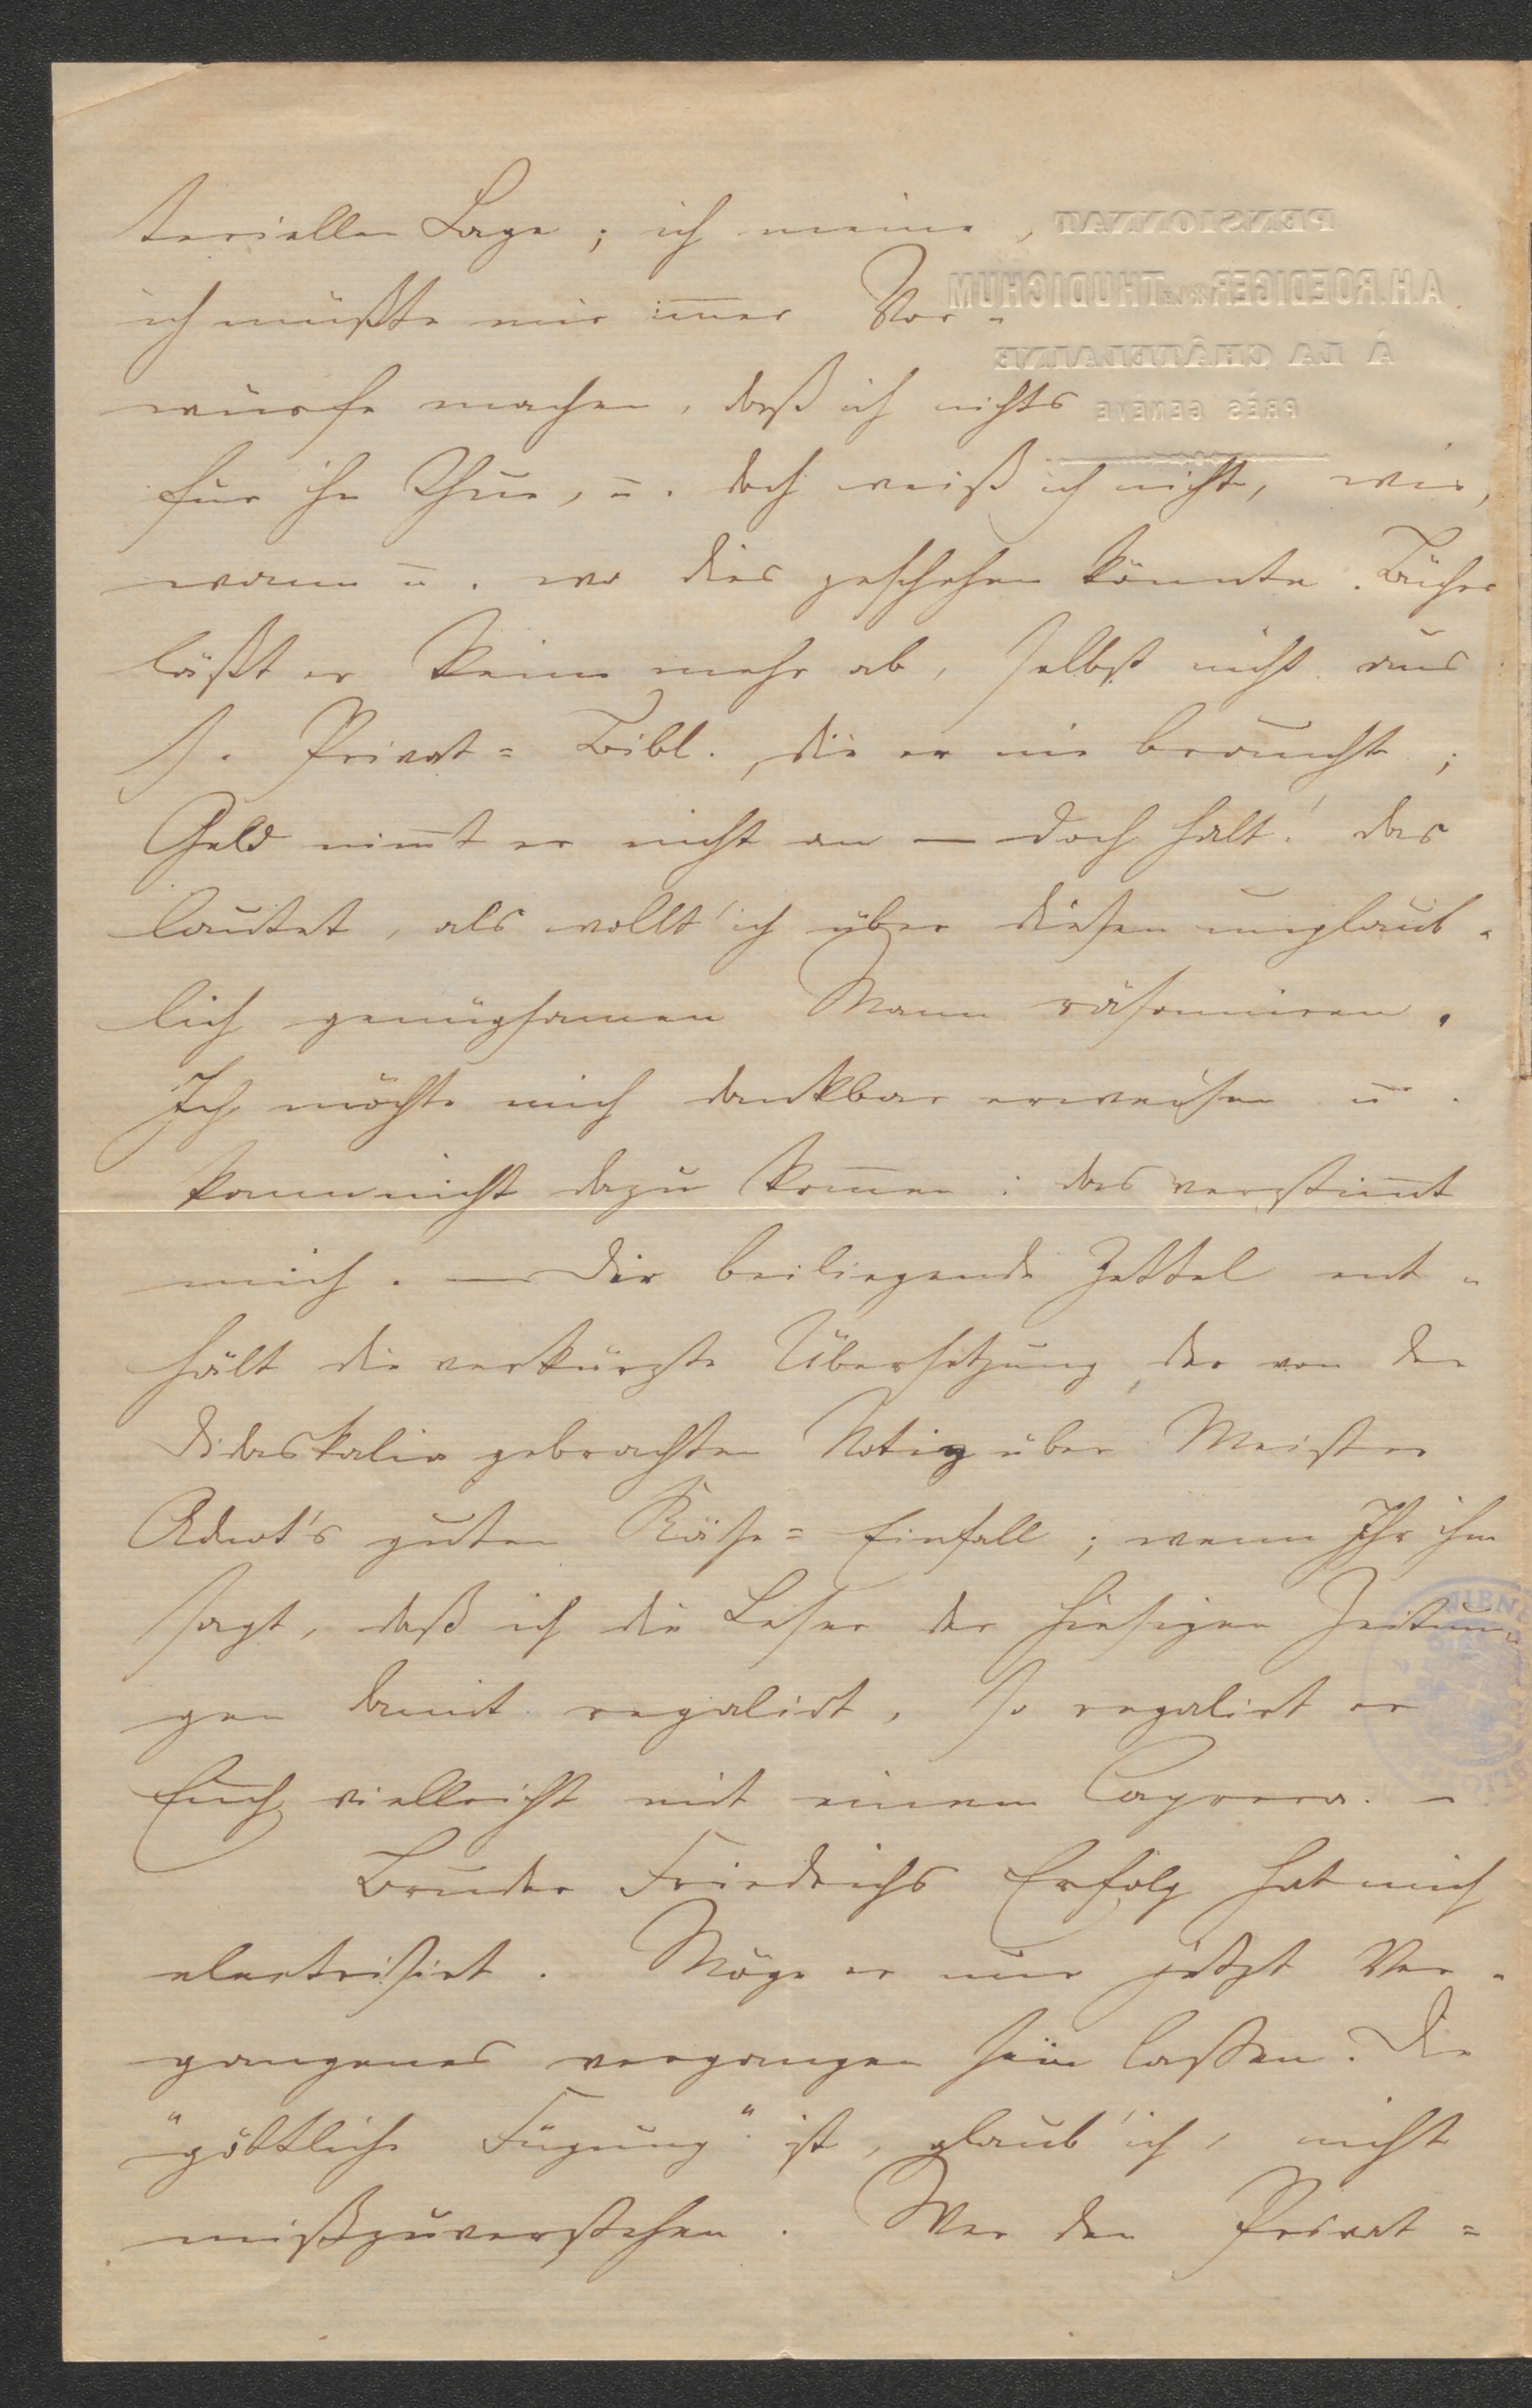 teriellen Lage; ich meine,
ich müßte mir im̅er Vor-
würfe machen, daß ich nichts
für ihn thue, u. doch weiß ich nicht, wie,
wann u. wo dies geschehen könnte. Bücher
läßt er keine mehr ab, selbst nicht aus
s. Privat-Bibl., die er nie braucht;
Geld nim̅t er nicht an — doch halt! das
lautet, als wollt' ich über diesen unglaub-
lich genügsamen Mann räsonniren.
Ich möchte mich dankbar erweisen u.
kann nicht dazu kom̅en: das verstim̅t
mich. — Der beiliegende Zettel ent-
hält die verkürzte Übersetzung der von der
Didaskalia gebrachten Notiz über Meister
guten Käse-Einfall; wenn Ihr ihm
sagt, daß ich die Leser der hiesigen Zeitun-
gen damit regalirt, so regalirt er
Euch vielleicht mit einem Caprera. —
Bruder Friedrichs Erfolg hat mich
electrisirt. Möge er nur jetzt Ver-
gangenes vergangen sein lassen. Die
"göttliche Fügung" ist, glaub' ich, nicht
mißzuverstehen. Wer den Privat-
PENSIONNAT
A.H. ROEDIGER THUDICHUM
À LA CHÂTELAINE
PRÈS GENÈVE